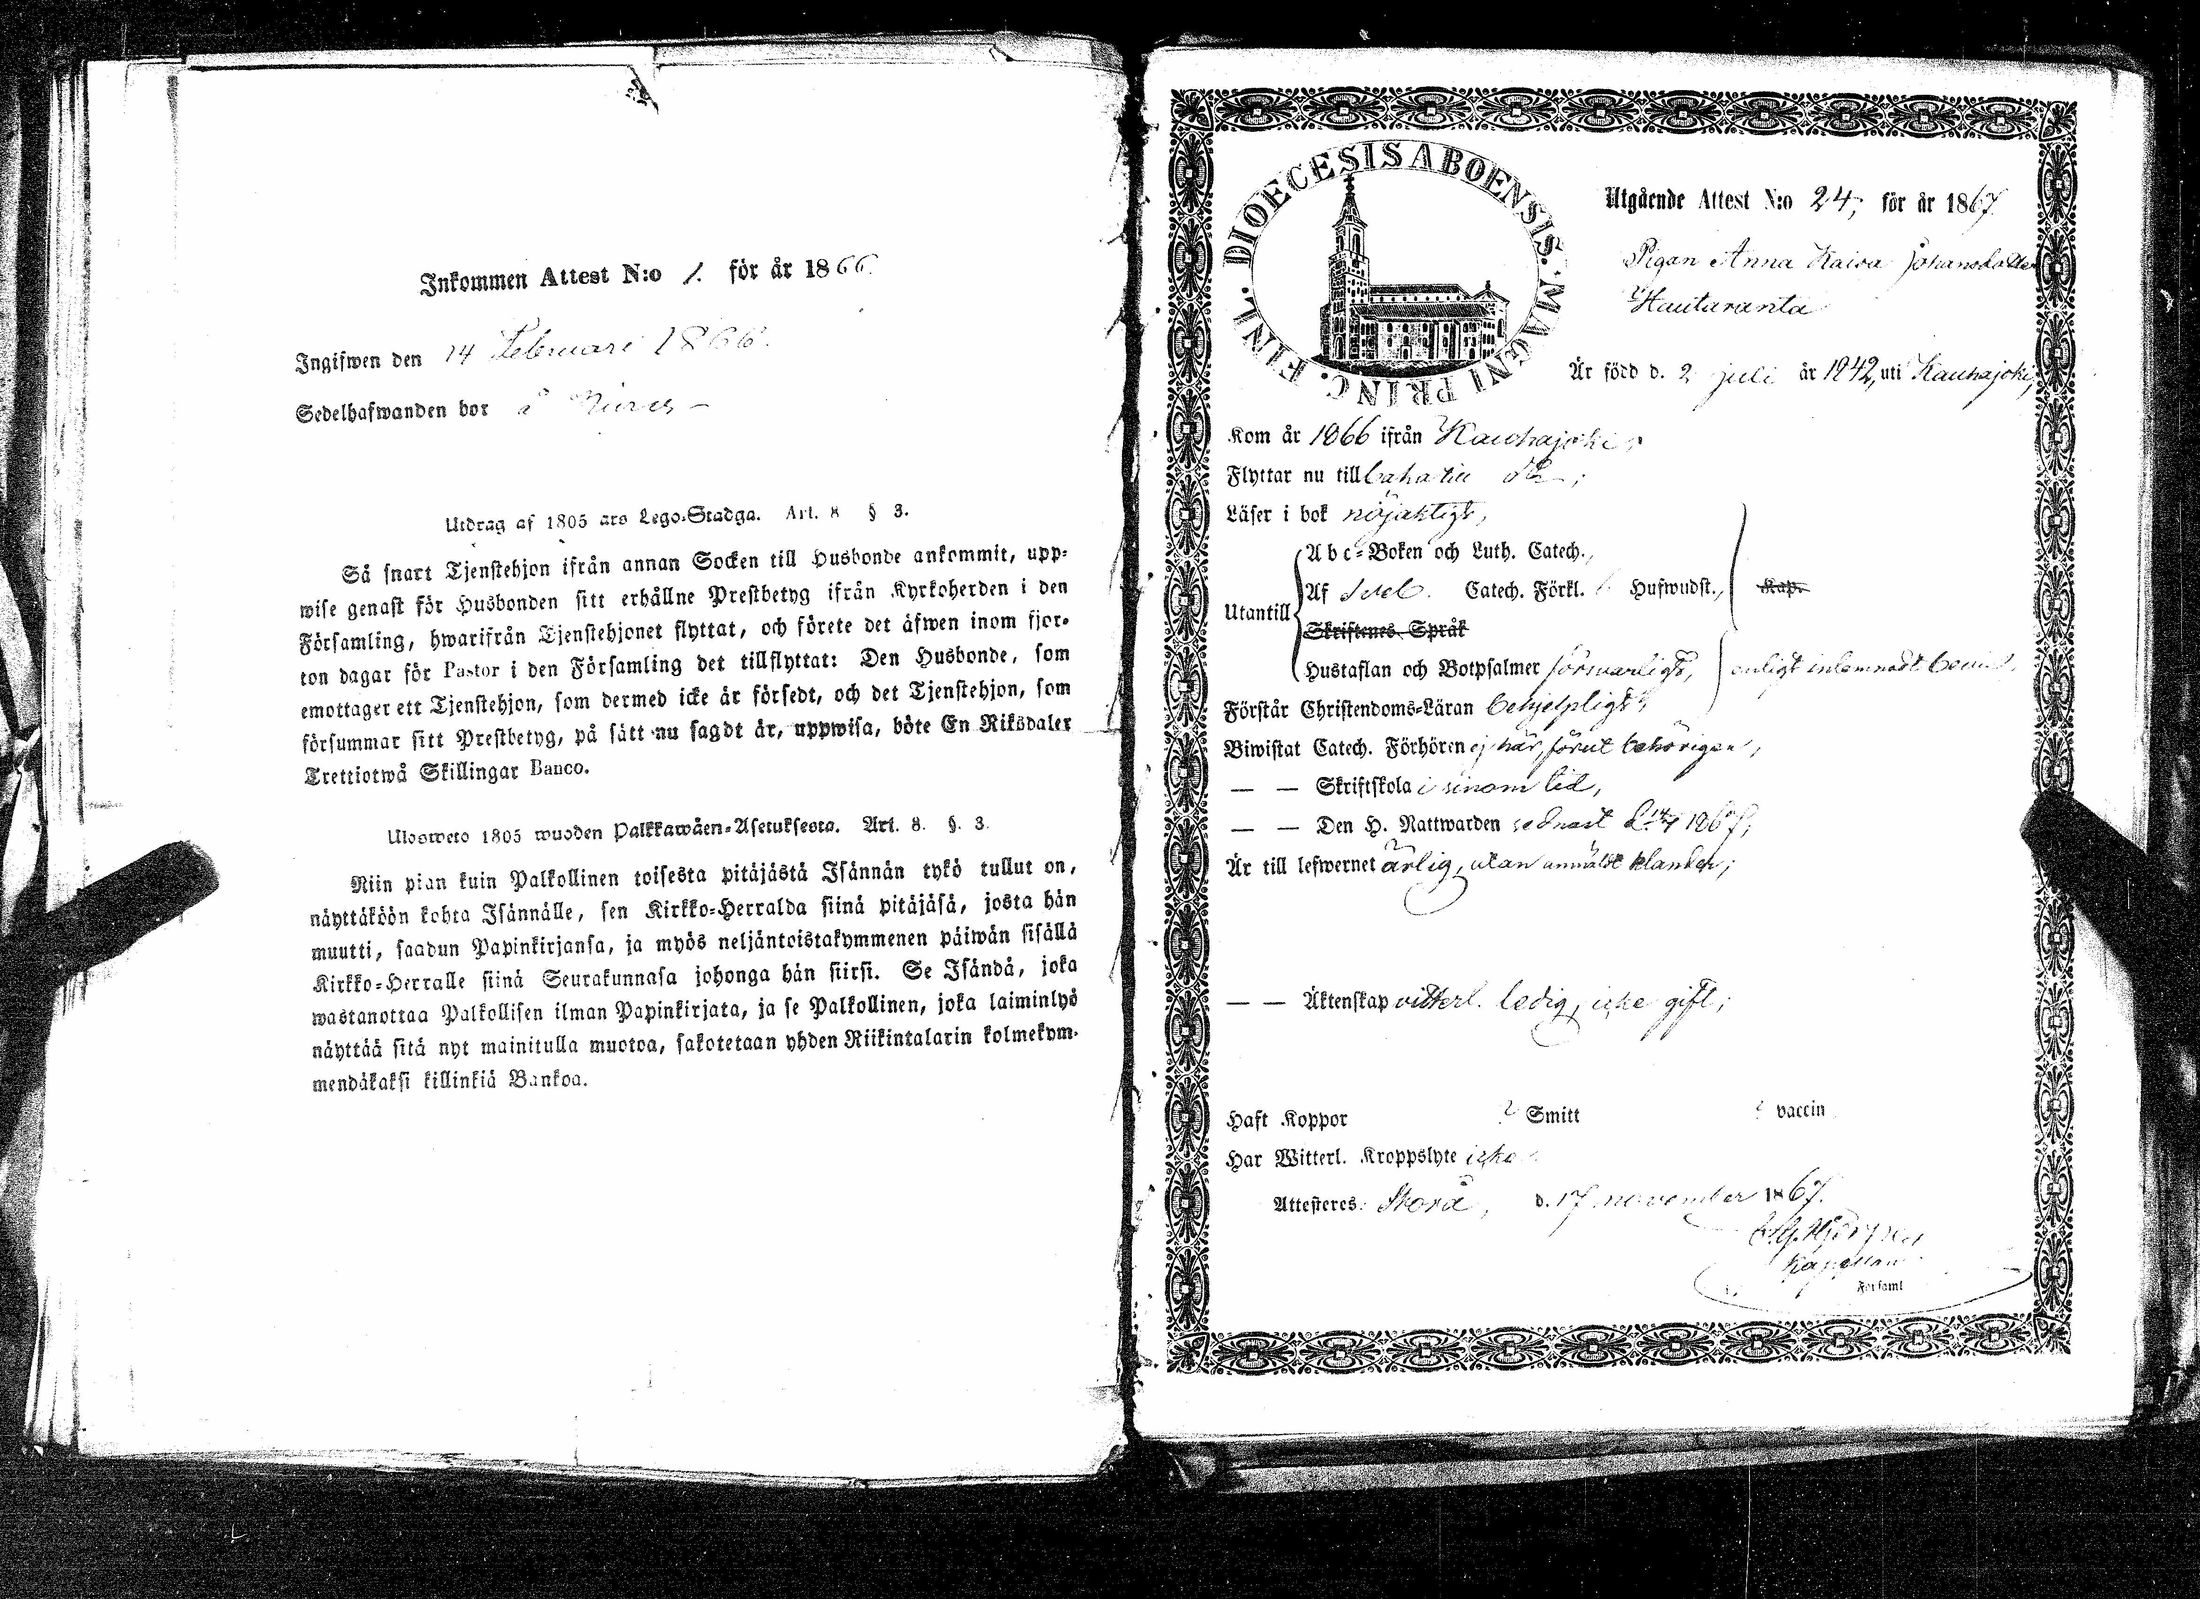 Inkommen Attest N:o 1. för år 1866.
Ingifwen den 14 Februari 1866.
Sedelhafwanden bor å
Utdrag af 1805 års Lego-Stadga. Art. 8 § 3.
Så snart Tjenstehjon ifrån annan Socken till Husbonde ankommit, upp-
wise genast för Husbonden sitt erhållne Prestbetyg ifrån Kyrkoherden i den
Församling, hwarifrån Tjenstehjonet flyttat, och förete det äfwen inom fjor-
ton dagar för Pastor i den Församling det tillflyttat: Den Husbonde, som
emottager ett Tjenstehjon, som dermed icke är försedt, och det Tjenstehjon, som
försummar sitt Prestbetyg, på sätt nu sagdt är, uppwisa, böte En Riksdaler
Trettiotwå Skillingar Banco.
Ulosweto 1805 wuoden Palkkawäen-Asetuksesta. Art. 8. §. 3.
Niin pian kuin Palkollinen toisesta pitäjästä Isännän tykö tullut on,
näyttäköön kohta Isännälle, sen Kirkko-Herralda siinä pitäjäsä, josta hän
muutti, saadun Papinkirjansa, ja myös neljäntoistakymmenen päiwän sisällä
Kirkko-Herralle siinä Seurakunnasa johonga hän siirsi. Se Isändä, joka
wastanottaa Palkollisen ilman Papinkirjata, ja se Palkollinen, joka laiminlyö
näyttää sitä nyt mainitulla muotoa, sakotetaan yhden Riikintalarin kolmekym-
mendäkaksi killinkiä Bankoa.
DIOECESIS ABOENSIS. MAGNI PRINC. FINL.
Utgående Attest N:o 24, för år 1867.
Pigan Anna Kaisa Johansdotter
Hautaranta
Är född d. 2 juli år 1842, uti Kauhajoki,
Kom år 1866 ifrån Kauhajoki;
Flyttar nu till
Läser i bok nöjaktigt,
Abc-Boken och Luth. Catech.,
Utantill Af Sveb. Catech. Förkl. 6 Hufwudst., Kap.
Skriftenes Språk
Hustaflan och Botpsalmer försvarligt, enligt inlemnadt bewis.
Förstår Christendoms-Läran behjelpligt,
Biwistat Catech. Förhören ej här, förut behörigen,
— — Skriftskola i sinom tid,
— — Den H. Nattwarden sednast 1867;
Är till lefwernet ärlig, utan anmäldt klander;
— — Äktenskap vitterl. ledig, icke gift;
Haft Koppor ? Smitt ? vaccin
Har Witterl. Kroppslyte icke.
Attesteres: Storå, d. 17 november 1867.
Kapellan
Församl